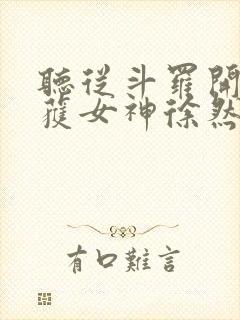 聽從斗羅開
獲女神徐然
有口難言